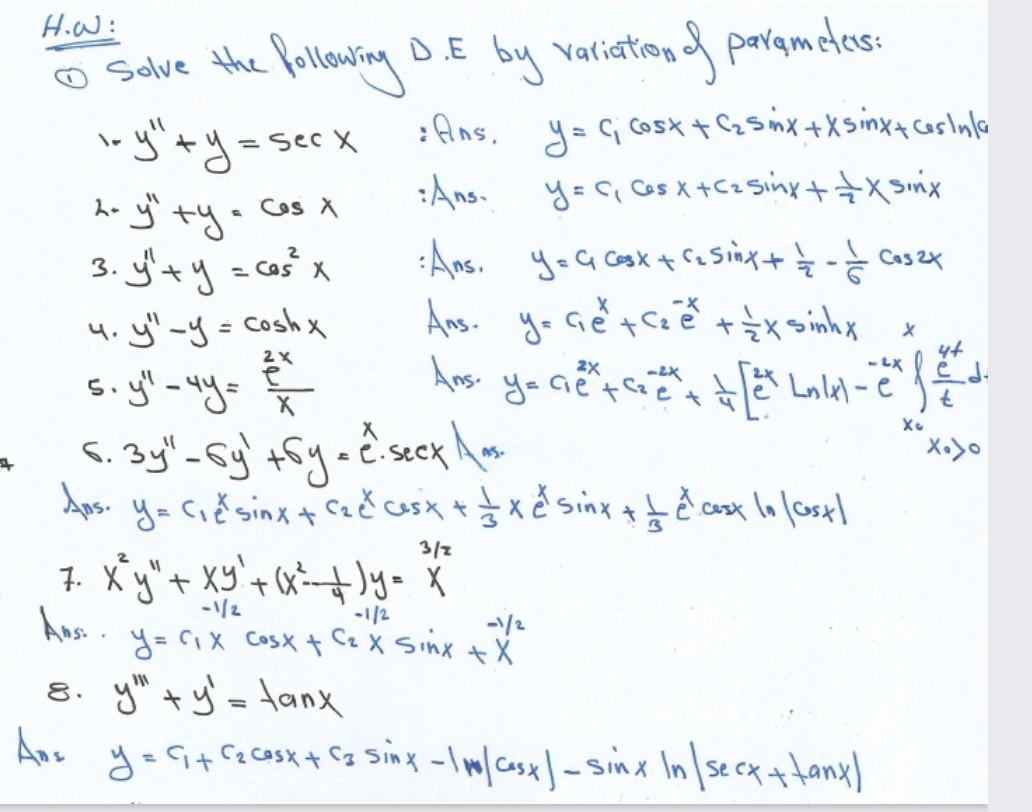 H.W:
① Solve the following D.E by variation of parameters:
1. y'' + y = sec x :Ans. y = c₁ cosx + c₂ sinx + x sinx + cos ln|c
2. y'' + y = cos x :Ans. y = c₁ cos x + c₂ sinx + 1/2 x sinx
3. y'' + y = cos² x :Ans. y = c₁ cosx + c₂ sinx + 1/2 - 1/6 cos 2x
4. y'' - y = cosh x Ans. y = c₁e^x + c₂e^-x + 1/2 x sinhx
5. y'' - 4y = e^2x / x Ans. y = c₁e^2x + c₂e^-2x + 1/4 [e^2x Ln|x| - e^-2x ∫_x₀^x e^4t / t d
x₀>0
6. 3y'' - 6y' + 6y = e^x . secx Ans.
Ans. y = c₁e^x sinx + c₂e^x cosx + 1/3 x e^x sinx + 1/3 e^x cosx ln |cosx|
7. x²y'' + xy' + (x² - 1/4)y = x^3/2
Ans. y = c₁x^-1/2 cosx + c₂ x^-1/2 sinx + x^-1/2
8. y''' + y' = tanx
Ans y = c₁ + c₂ cosx + c₃ sinx - ln|cosx| - sinx ln|secx + tanx|